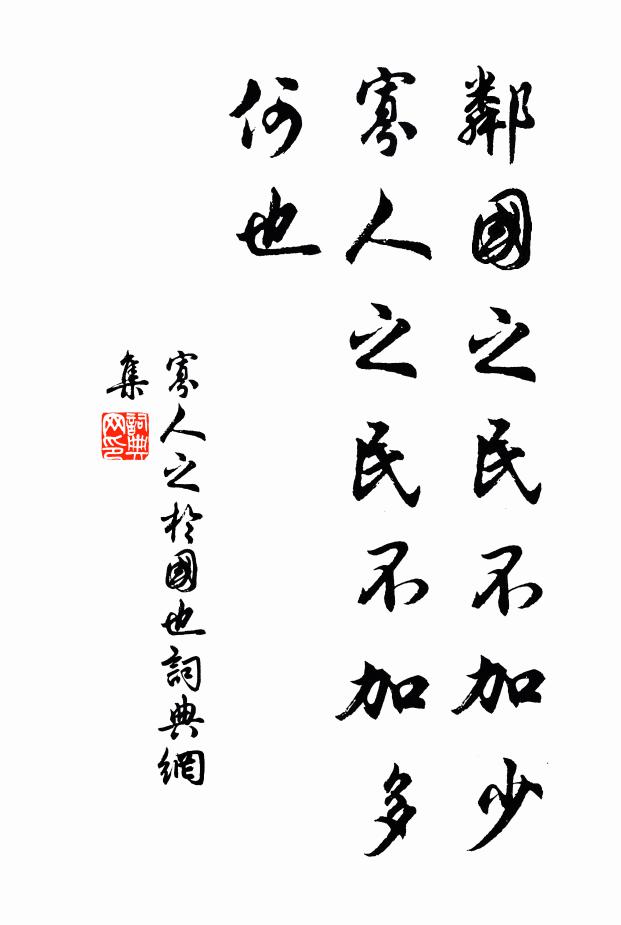 鄰國之民不加少
寡人之民不加多
何也
寡人之於國也詞典網
集
詞典
网印